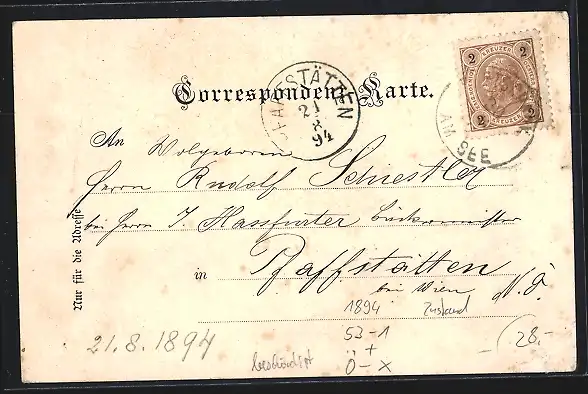 Correspondenz-Karte.
PFAFFSTÄTTEN
21
8
94
2 KREUZER 2
2 KREUZER 2
AM SEE
An Wolgeboren
Herrn Rudolf Schiestler
bei Herrn J. Hassfurter Bäckermeister
in Pfaffstätten
bei Wien N.Ö.
Nur für die Adresse
1894 Zustand
53-1
+
Ö-X
21.8.1894
beschädigt
- (28.-